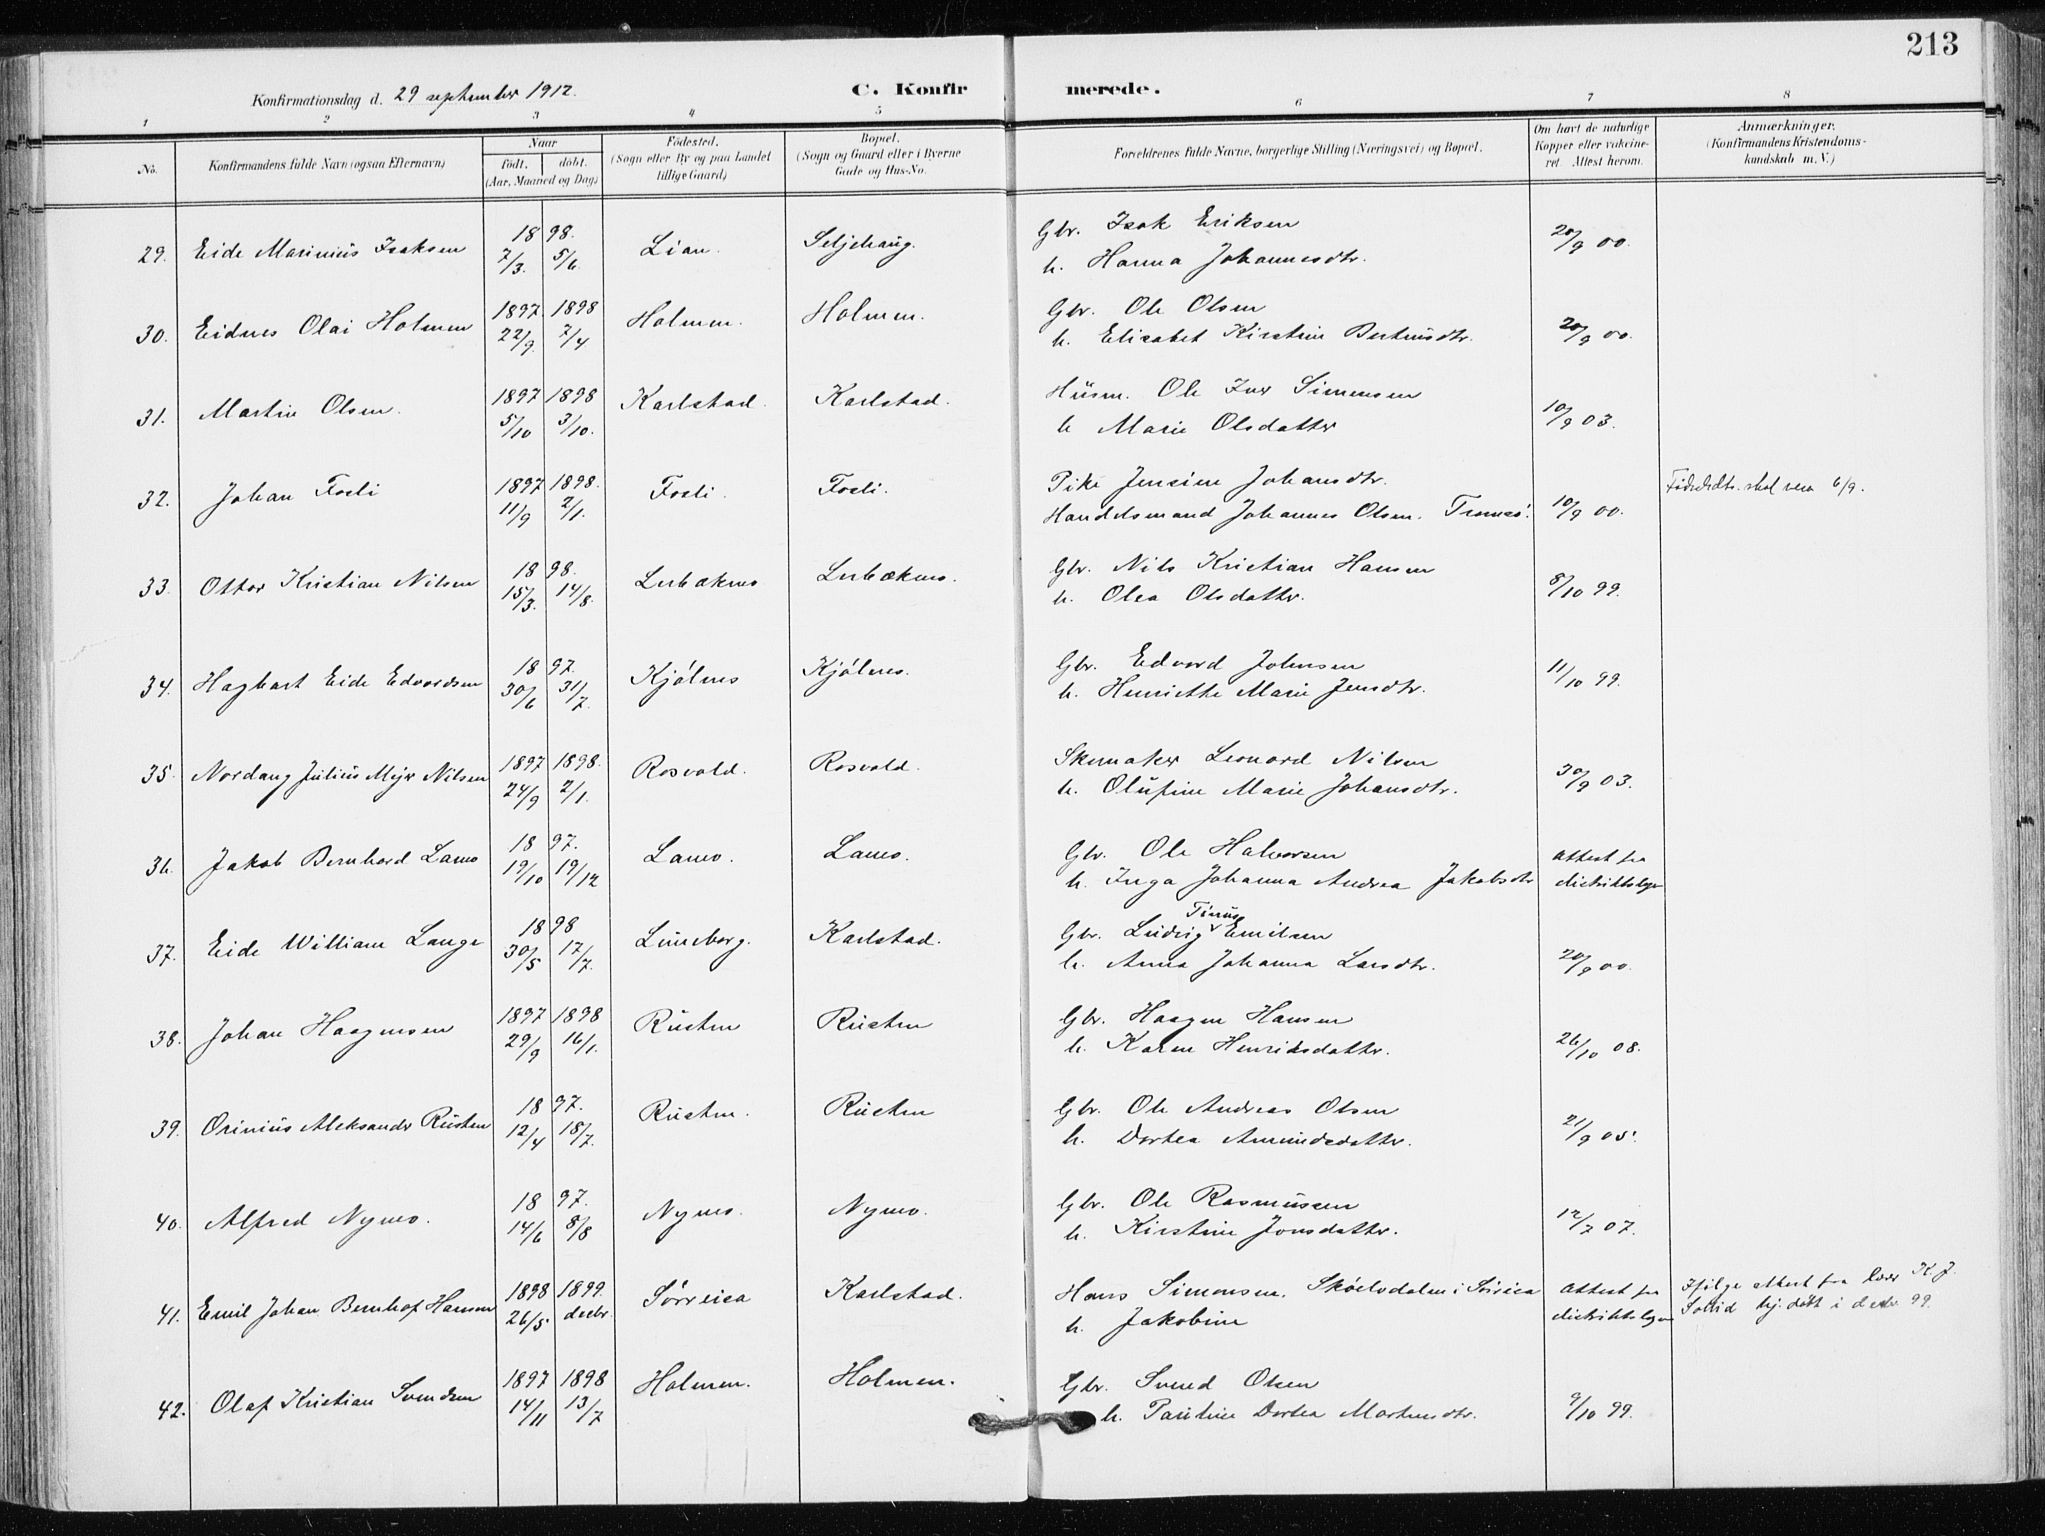 213
Konfirmationsdag d. 29 september 1912.
C. Konfirmerede.
1 2 3 4 5 6 7 8
No.
Konfirmandens fulde Navn (ogsaa Efternavn)
Naar
født. døbt.
(Aar, Maaned og Dag)
Fødested.
(Sogn eller By og paa Landet
tillige Gaard)
Bopæl.
(Sogn og Gaard eller i Byerne
Gade og Hus-No.
Forældrenes fulde Navne, borgerlige Stilling (Næringsvei) og Bopæl.
Om havt de naturlige
Kopper eller vakcine-
ret. Attest herom.
Anmærkninger.
(Konfirmandens Kristendoms-
kundskab m. V.)
29. Eide Marinius Isaksen 1898. 7/3. 5/6. Lian. Seljehaug. Gbr. Isak Eriksen 20/9 00.
h. Hanna Johannesdtr.
30. Eidnes Olai Holmen 1897 1898 22/9. 7/4 Holmen. Holmen. Gbr. Ole Olsen 20/9 00.
h. Elisabet Kirstine Bertinsdtr.
31. Martin Olsen. 1897 1898 5/10 3/10. Karlstad. Karlstad. Husm. Ole Iver Simensen 10/9 03.
h Marie Olsdatter
32. Johan Fosli 1897 1898. 11/9 2/1. Fosli. Fosli. Pike Jensine Johansdtr. 10/9 00. Fødselsdtr. skal være 6/9.
Handelsmand Johannes Olsen. Tromsö.
33. Ottar Kristian Nilsen 1898. 15/3. 14/8. Lerbæknes Lerbæknes. Gbr. Nils Kristian Hansen 8/10 99.
h. Olea Olsdatter.
34. Hagbart Eide Edvardsen 1897. 30/6 31/7. Kjölnes Kjölnes. Gbr. Edvard Johnsen 11/10 99.
h. Henriette Marie Jensdtr.
35. Nordang Julius Mejer Nilsen 1897 1898. 24/9 2/1. Rosvold. Rosvold. Skomaker Leonard Nilsen 30/9 03.
h. Olufine Marie Johansdtr.
36. Jakob Bernhard Lamo 1897. 19/10 19/12 Lamo. Lamo. Gbr. Ole Halvorsen attest fra
h. Inga Johanna Andrea Jakobsdtr distriktslæge
37. Eide William Lange 1898 30/5 17/7. Luneborg. Karlstad. Gbr. Ludvig Tinus Emilsen 20/9 00.
h. Anna Johanna Larsdtr.
38. Johan Haagensen 1897 1898 29/9 16/1. Rusten Rusten Gbr. Haagen Hansen 26/10 08.
h. Karen Henriksdatter.
39. Orinius Aleksander Rusten 1897. 12/4 18/7. Rusten. Rusten Gbr. Ole Andreas Olsen 21/9 05.
h. Dortea Amundsdatter.
40. Alfred Nymo. 1897. 14/6 8/8 Nymo. Nymo. Gbr. Ole Rasmussen 12/7 07.
h. Kirstine Jonsdatter.
41. Emil Johan Bernhof Hansen 1898 1899. 26/5 decbr. Sörreisa Karlstad. Hans Simonsen. Sköelvdalen i Sörreisa attest fra Ifölge attest fra lærer K. J.
h. Jakobine distriktslægen Sollid hj. döbt i decbr. 99.
42. Olaf Kristian Svendsen 1897 1898 14/11 13/7 Holmen. Holmen. Gbr. Svend Olsen 9/10 99.
h. Pauline Dortea Mortensdtr.